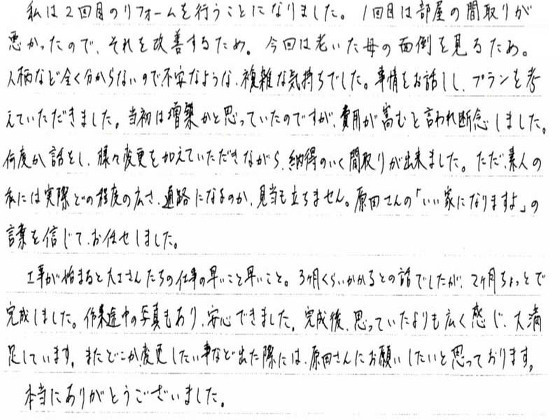 私は2回目のリフォームを行うことになりました。1回目は部屋の間取りが
悪かったので、それを改善するため。今回は老いた母の面倒を見るため。
人柄など全く分からないので不安なような、複雑な気持ちでした。事情をお話しし、プランを考
えていただきました。当初は増築かと思っていたのですが、費用が嵩むと言われ断念しました。
何度か話をし、様々変更を加えていただきながら、納得のいく間取りが出来ました。ただ、素人の
私には実際どの程度の広さ、通路になるのか、見当も立ちません。原田さんの「いい家になりますよ」の
言葉を信じて、お任せしました。
工事が始まると大工さんたちの仕事の早いこと早いこと。3ヶ月くらいかかるとの話でしたが、2ヶ月ちょっとで
完成しました。作業途中の写真もあり、安心できました。完成後、思っていたよりも広く感じ、大満
足しています。またどこか変更したい事など出た際には、原田さんにお願いしたいと思っております。
本当にありがとうございました。